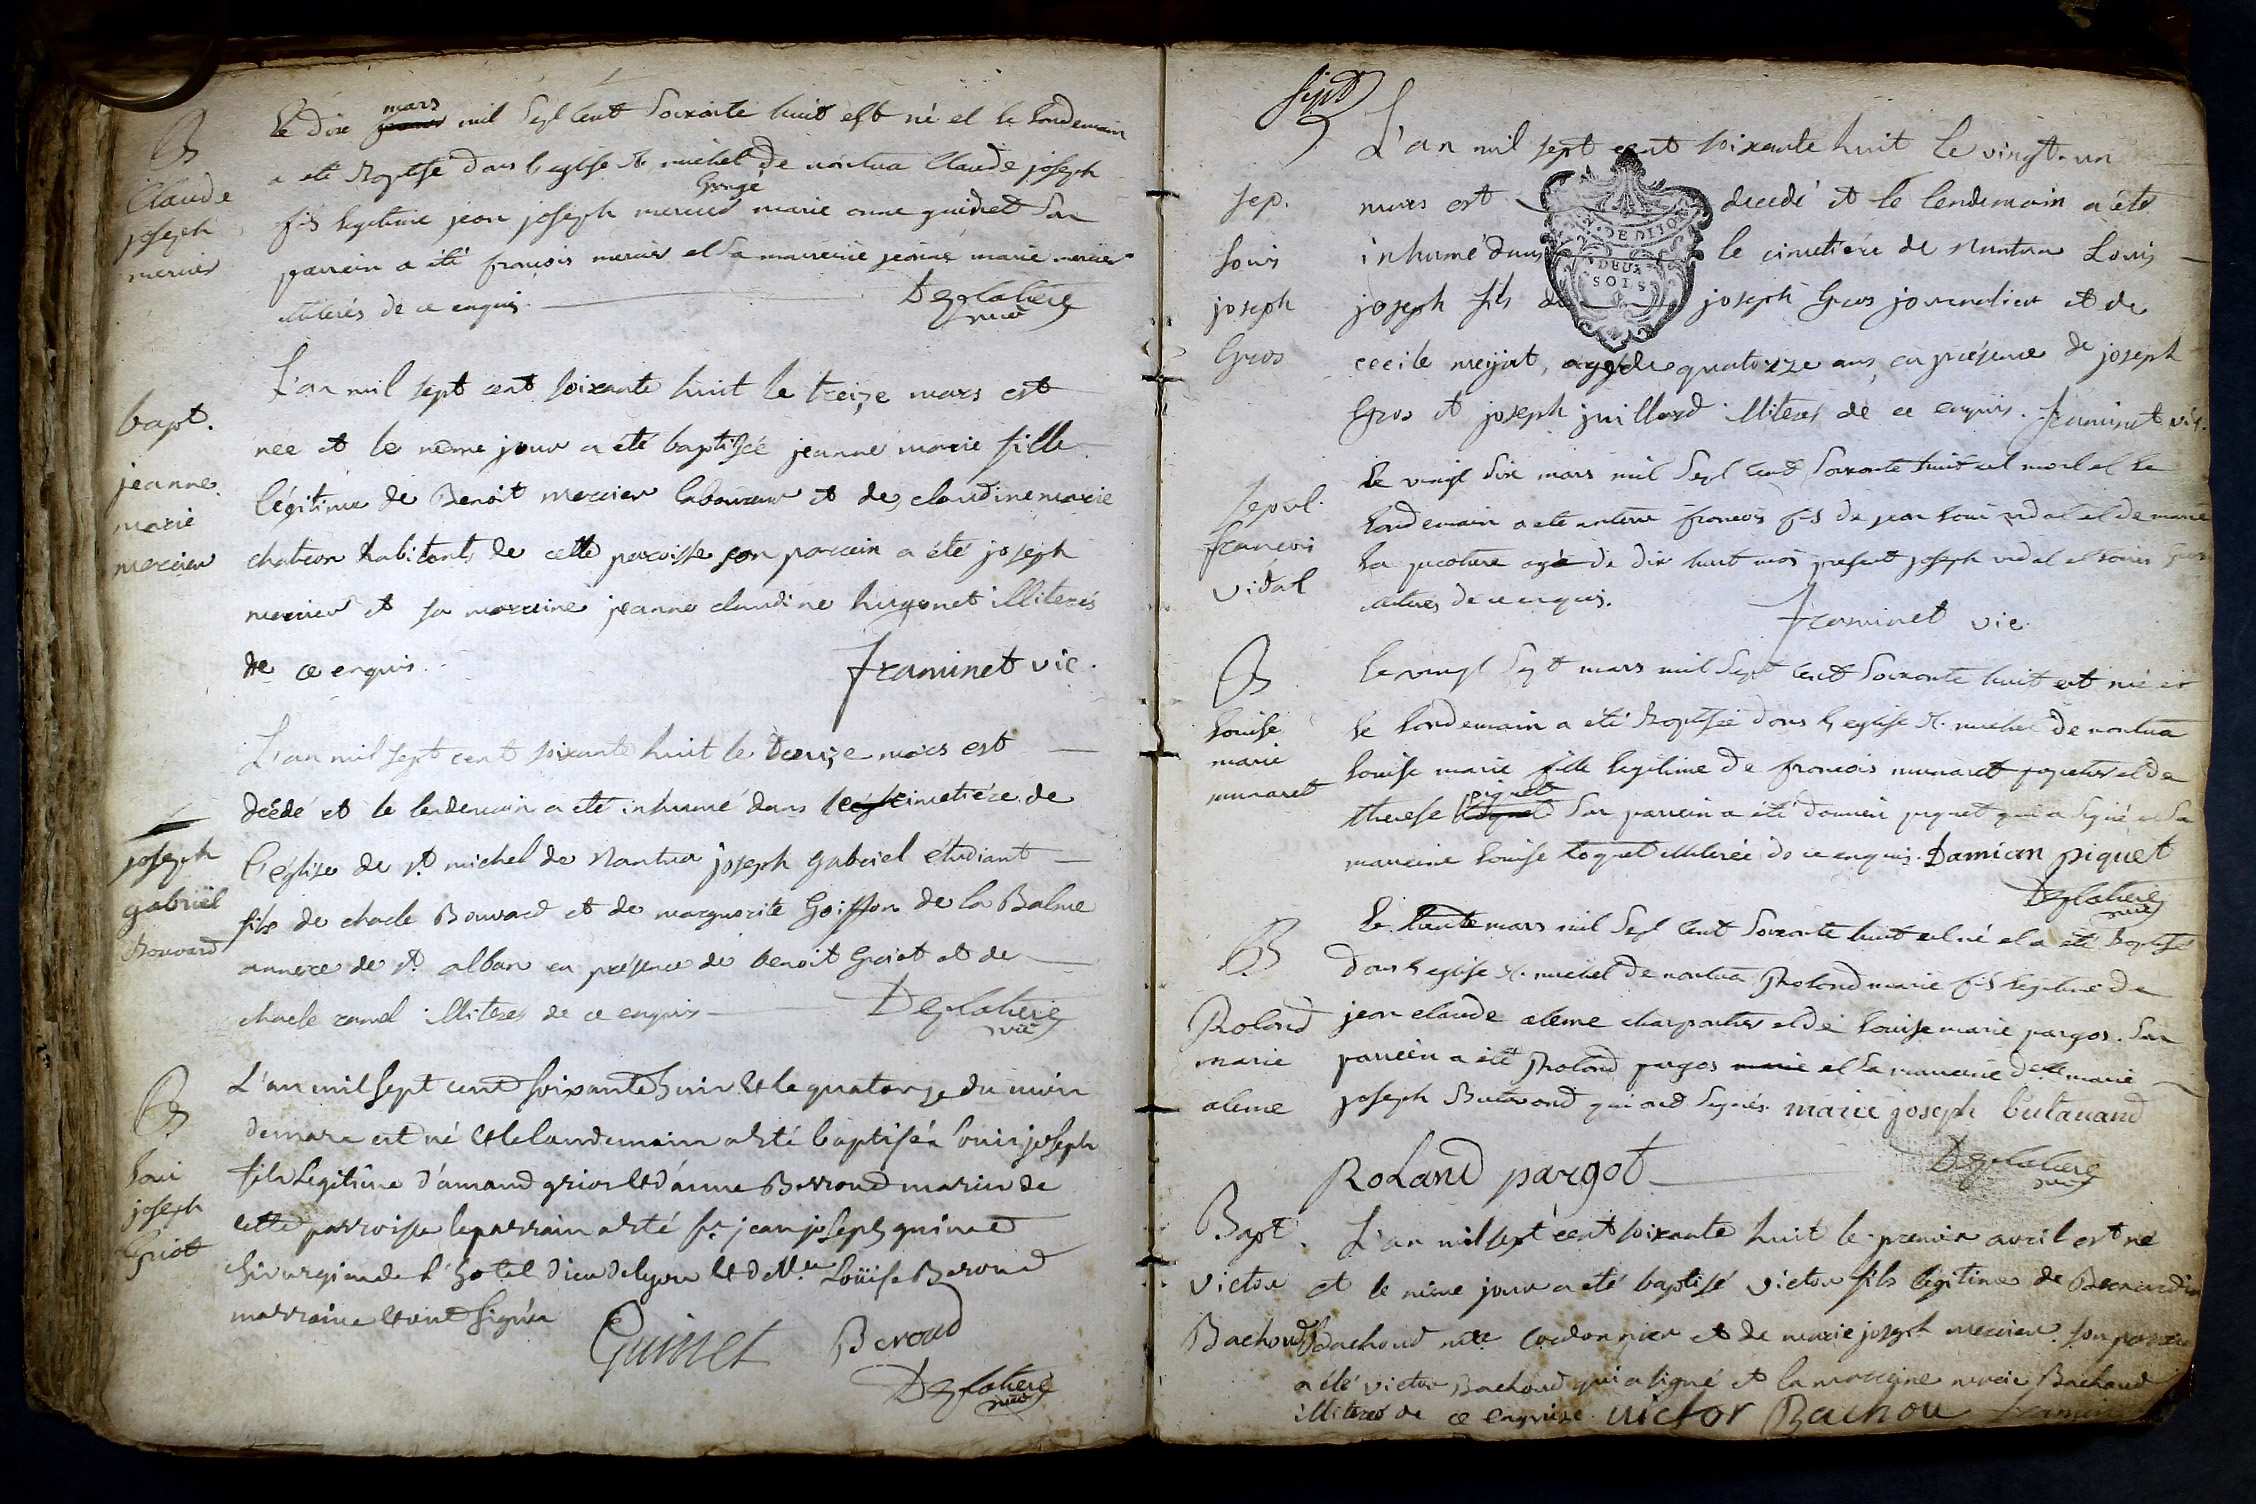 B
Claude
joseph
mercier
Le dix mars mil Sept Cent Soixante huit est né et le Lendemain
a eté Baptisé dans l'eglise St michel de nantua Claude joseph
fils legitime jean joseph mercier Gringe marie anne guinet Son
parrein a été francois mercier et Sa marreine jeanne marie mercier
illiterés de ce enquis
Deglatiere
vic
bapt.
jeanne
marie
mercier
L'an mil sept cent soixante huit le treize mars est
née et le même jour a été baptisée jeanne marie fille
légitime de Benoit mercier laboureur et de claudine marie
chatron habitants de cette paroisse son parrain a été joseph
mercier et sa marraine jeanne claudine hugonet illiterés
de ce enquis.
framinet vic.
joseph
gabriël
Bouvard
L'an mil sept cent soixante huit le treize mars est
décédé et le lendemain a eté inhumé dans le cimetiére de
l'église de St. michel de Nantua joseph gabriel étudiant
fils de charle Bouvard et de marguerite Goiffon de la Balme
annexe de St. alban en présence de benoit Griot et de
charle ramel illiteres de ce enquis
Deglatiere
vic
B
Loui
joseph
Griot
L'an mil sept cent soixante huit et le quatorze du mois
de mars est né et le landemain a eté baptisé Louis joseph
fils Legitime d'amand griot et d'anne Berroud mariés de
cette parroisse le parrain a eté sr. jean joseph guinet
chirurgien de l'hotel dieu de lyon et delle. Loüise Beroud
marraine et ont signés
Guinet
Beroud
Deglatiere
vic
sept
sep.
Louis
joseph
Gros
L'an mil sept cent soixante huit le vingt-un
mars est decedé et le lendemain a été
inhumé dans le cimetiére de Nantua Louis
joseph fils de joseph Gros journalier et de
cecile meyjat, aggé de quatorze ans, en présence de joseph
Gros et joseph juillard illiterés de ce enquis. framinet vic.
G. DE DIJON
DEUX
SOLS
sepul.
francois
vidal
Le vingt Six mars mil Sept Cent Soixante huit est mort et le
Lendemain a eté enterré francois fils de jean Loui vidal et de marie
La pucotiere agé de dix huit mois present joseph vidal et Louis Gros
illiteres de ce enquis.
framinet vic.
B
Louise
marie
munaret
Le vingt Sept mars mil Sept Cent Soixante huit est née et
le Lendemain a été Baptisée dans l'eglise St. michel de nantua
Louise marie fille legitime de francois munaret et de
piquet
therese Son parrein a été damien piquet qui a Signé et Sa
marreine Louise toquet illiterée de ce enquis. Damian piquet
Deglatiere
vic
B
Roland
marie
aleme
Le trente mars mil Sept Cent Soixante huit est né et a été Baptisé
dans l'eglise St. michel de nantua Roland marie fils legitime de
jean claude aleme charpentier et de Louise marie pargos. Son
parrein a été Roland pargos marie et Sa marreine Delle marie
joseph Butavand qui ont Signés. marie joseph butavand
Roland pargot
Deglatiere
vic
Bapt.
Victor
Bachoud
L'an mil sept cent soixante huit le premier avril est né
et le même jour a eté baptisé victor fils légitime de Bernardin
Bachoud mtre Cordonnier et de marie joseph mercier. son parrain
a été victor Bachoud qui a signé et la marraine marie Bachoud
illiterée de ce enquise victor Bachou framinet